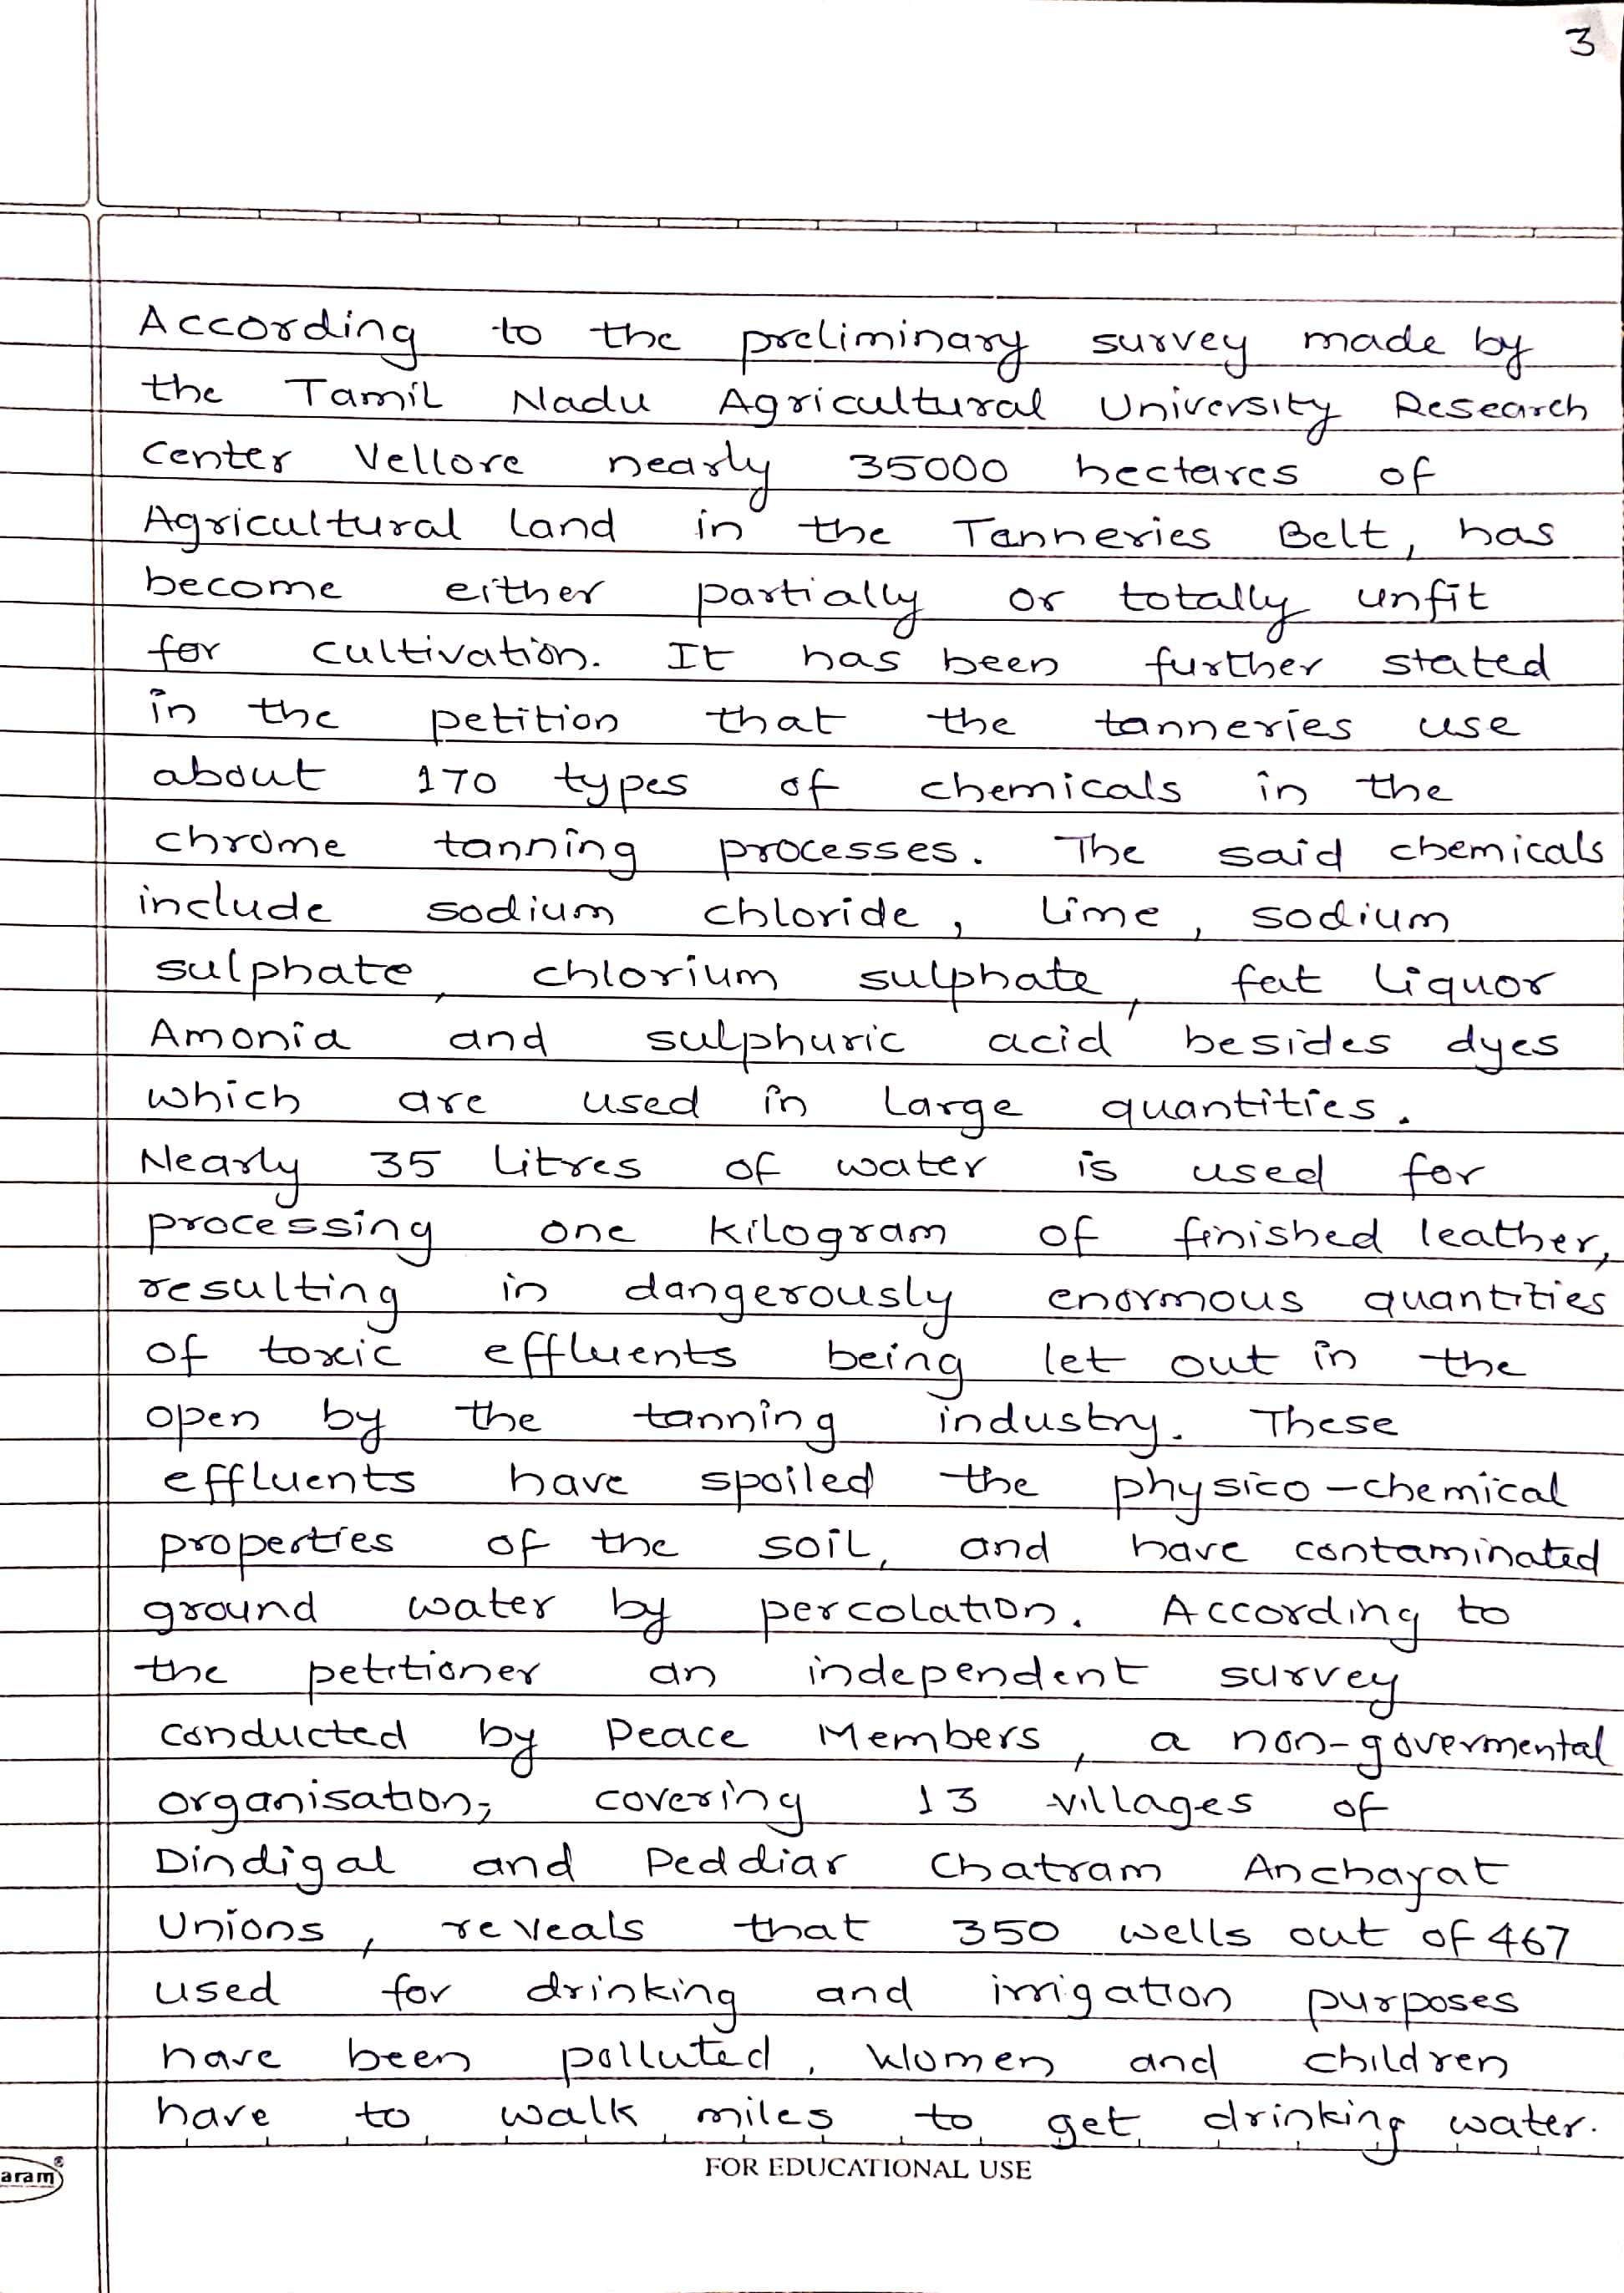 3
According to the preliminary survey made by
the Tamil Nadu Agricultural University Research
Center Vellore nearly 35000 hectares of
Agricultural land in the Tanneries Belt, has
become either partially or totally unfit
for cultivation. It has been further stated
in the petition that the tanneries use
about 170 types of chemicals in the
chrome tanning processes. The said chemicals
include sodium chloride, lime, sodium
sulphate, chlorium sulphate, fat liquor
Amonia and sulphuric acid besides dyes
which are used in large quantities.
Nearly 35 litres of water is used for
processing one kilogram of finished leather,
resulting in dangerously enormous quantities
of toxic effluents being let out in the
open by the tanning industry. These
effluents have spoiled the physico-chemical
properties of the soil, and have contaminated
ground water by percolation. According to
the petitioner an independent survey
conducted by Peace Members, a non-govermental
organisation, covering 13 villages of
Dindigal and Peddiar Chatram Anchayat
Unions, reveals that 350 wells out of 467
used for drinking and irrigation purposes
have been polluted. Women and children
have to walk miles to get drinking water.
aram®
FOR EDUCATIONAL USE